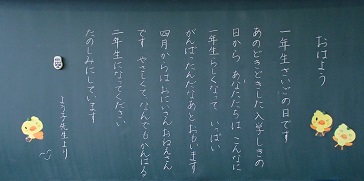 おはよう
一年生さいごの日です
あのどきどきした入学しきの
日から あなたたちは こんなに
一年生らしくなって いっぱい
がんばったんだなあとおもいます
四月からはおにいさんおねえさん
です やさしくてなんでもがんばる
二年生になってください
たのしみにしています
ようこ先生より